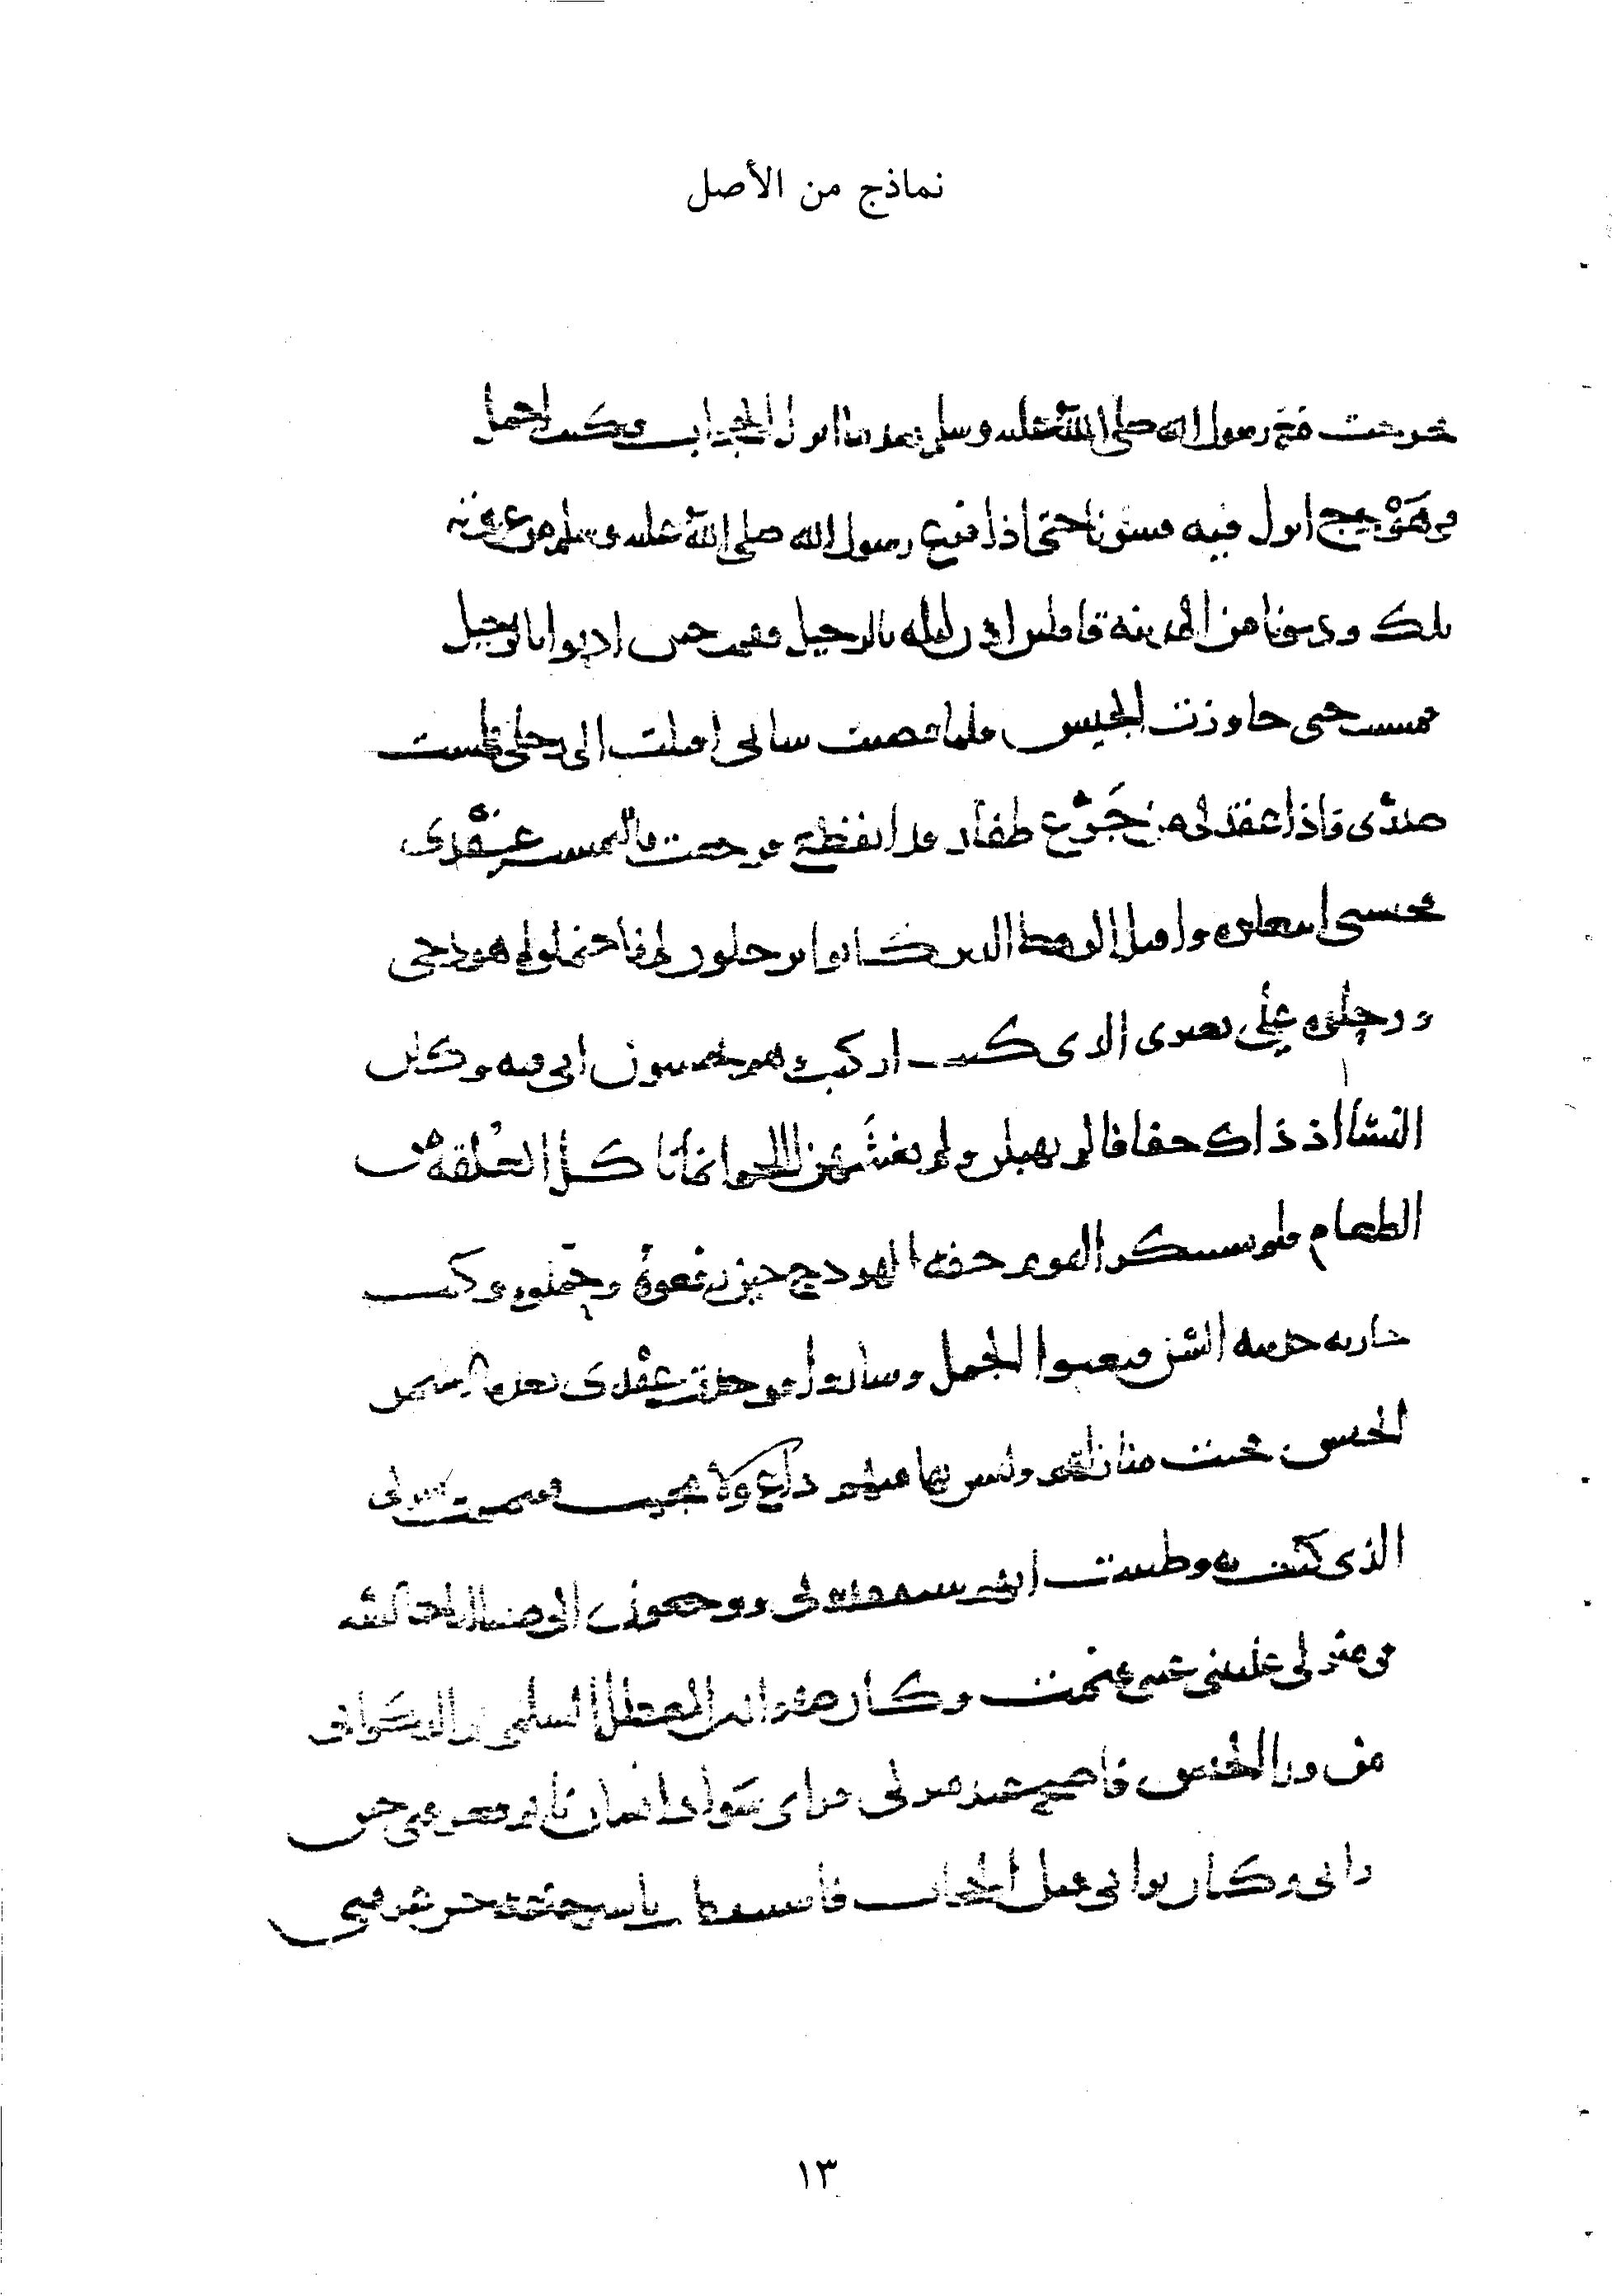 نماذج من الأصل
خرجت مع رسول الله صلى الله عليه وسلم بعد ما انزل الحجاب وكنت احمل
فى هودج انزل فيه فسرنا حتى اذا فرغ رسول الله صلى الله عليه وسلم من غزوته
تلك ودنونا من المدينة قافلين اذن ليله بالرحيل فقمت حين اذنوا بالرحيل
فمشيت حتى جاوزت الجيش فلما قضيت شانى اقبلت الى رحلى فلمست
صدرى فاذا عقد لى من جزع ظفار قد انقطع فرجعت فالتمست عقدى
فحبسنى ابتغاوه واقبل الرهط الذين كانوا يرحلون لى فاحتملوا هودجى
ورحلوه على بعيرى الذى كنت اركب وهم يحسبون انى فيه وكان
النسا اذ ذاك خفافا لم يهبلن ولم يغشهن اللحم انما ناكل العلقه من
الطعام فلم يستنكر القوم خفه الهودج حين رفعوه وحملوه وكنت
جاريه حديثه السن فبعثوا الجمل وساروا فوجدت عقدى بعد ما استمر
الجيش فجئت منازلهم وليس بها منهم داع ولا مجيب فتيممت منزلى
الذى كنت به وظننت انهم سيفقدونى ويرجعون الى فبينا انا جالسه
فى منزلى غلبتنى عينى فنمت وكان صفوان بن المعطل السلمى ثم الذكوانى
من ورا الجيش فاصبح عند منزلى فراى سواد انسان نايم فعرفنى حين
رانى وكان يرانى قبل الحجاب فاستيقظت باسترجاعه حين عرفنى
١٣